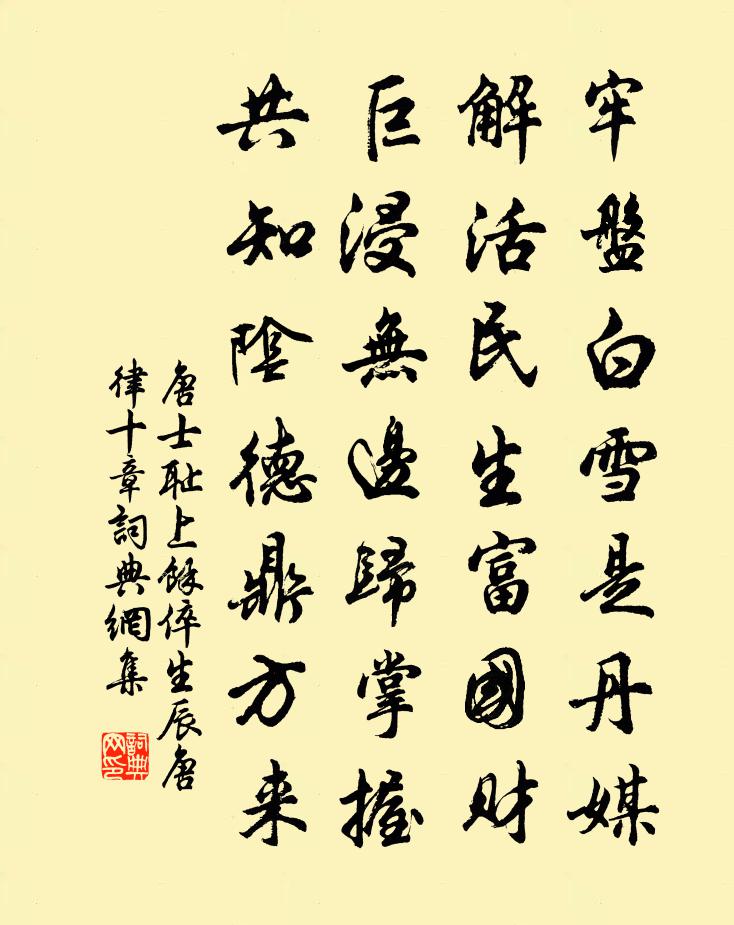 牢盤白雪是丹媒
解活民生富國財
巨浸無邊歸掌握
共知陰德鼎方来
唐士耻上餘倅生辰唐
律十章詞典網集
詞典網印